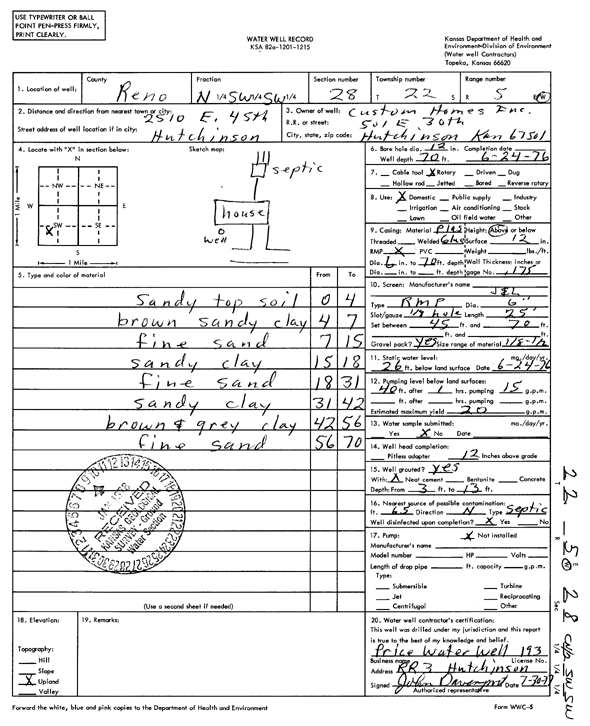 USE TYPEWRITER OR BALL
POINT PEN-PRESS FIRMLY,
PRINT CLEARLY.
WATER WELL RECORD
KSA 82a-1201-1215
Kansas Department of Health and
Environment-Division of Environment
(Water well Contractors)
Topeka, Kansas 66620
1. Location of well: County Reno Fraction N 1/4 SW 1/4 SW 1/4 Section number 28 Township number T 22 S Range number R 5 E/W
2. Distance and direction from nearest town or city: 2510 E. 45th
Street address of well location if in city: Hutchinson
3. Owner of well: Custom Homes Inc.
R.R. or street: 501 E 30th
City, state, zip code: Hutchinson Kan 67501
4. Locate with "X" in section below: Sketch map:
N
NW NE
W E
SW SE
X
S
1 Mile
1 Mile
septic
house
well
5. Type and color of material From To
Sandy top soil 0 4
brown sandy clay 4 7
fine sand 7 15
sandy clay 15 18
fine sand 18 31
sandy clay 31 42
brown & grey clay 42 56
fine sand 56 70
RECEIVED
KANSAS GEOLOGICAL
SURVEY - Ground
Water Section
(Use a second sheet if needed)
6. Bore hole dia. 12 in. Completion date
Well depth 70 ft. 6-24-76
7. Cable tool X Rotary Driven Dug
Hollow rod Jetted Bored Reverse rotary
8. Use: X Domestic Public supply Industry
Irrigation Air conditioning Stock
Lawn Oil field water Other
9. Casing: Material Plas Height: Above or below
Threaded Welded Glue Surface 12 in.
RMP X PVC Weight lbs./ft.
Dia. 6 in. to 70 ft. depth Wall Thickness: inches or
Dia. in. to ft. depth gage No. .175
10. Screen: Manufacturer's name
J&L
Type RMP Dia. 6"
Slot/gauze 1/8 hole Length 25'
Set between 45 ft. and 70 ft.
ft. and ft.
Gravel pack? Yes Size range of material 1/8-1/2
11. Static water level: mo./day/yr.
26 ft. below land surface Date 6-24-76
12. Pumping level below land surfaces:
40 ft. after 1 hrs. pumping 15 g.p.m.
ft. after hrs. pumping g.p.m.
Estimated maximum yield 20 g.p.m.
13. Water sample submitted: mo./day/yr.
Yes X No Date
14. Well head completion:
Pitless adapter 12 Inches above grade
15. Well grouted? yes
With: X Neat cement Bentonite Concrete
Depth: From 3 ft. to 13 ft.
16. Nearest source of possible contamination:
ft. 65 Direction N Type Septic
Well disinfected upon completion? X Yes No
17. Pump: X Not installed
Manufacturer's name
Model number HP Volts
Length of drop pipe ft. capacity g.p.m.
Type:
Submersible Turbine
Jet Reciprocating
Centrifugal Other
18. Elevation:
Topography:
Hill
Slope
X Upland
Valley
19. Remarks:
20. Water well contractor's certification:
This well was drilled under my jurisdiction and this report
is true to the best of my knowledge and belief.
Price Water Well 193
Business name License No.
Address RR3 Hutchinson
Signed John Davenport Date
Authorized representative
Forward the white, blue and pink copies to the Department of Health and Environment
Form WWC-5
T 22 - R 5 E/W Sec 28 1/4 1/4 1/4 SW SW